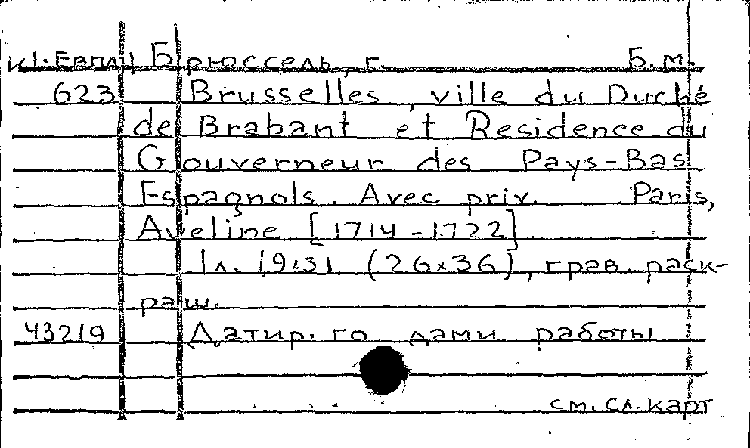 Брюссель, г. Б.м.
623 Brusselles, ville du Duché
de Brabant et Residence du
Gouverneur des Pays-Bas
Espagnols. Avec priv. Paris,
Aveline [1714-1722]
1л. 19х31 (26х36), грав. раск-
раш.
43219 Датир. годами работы
см. сл. карт